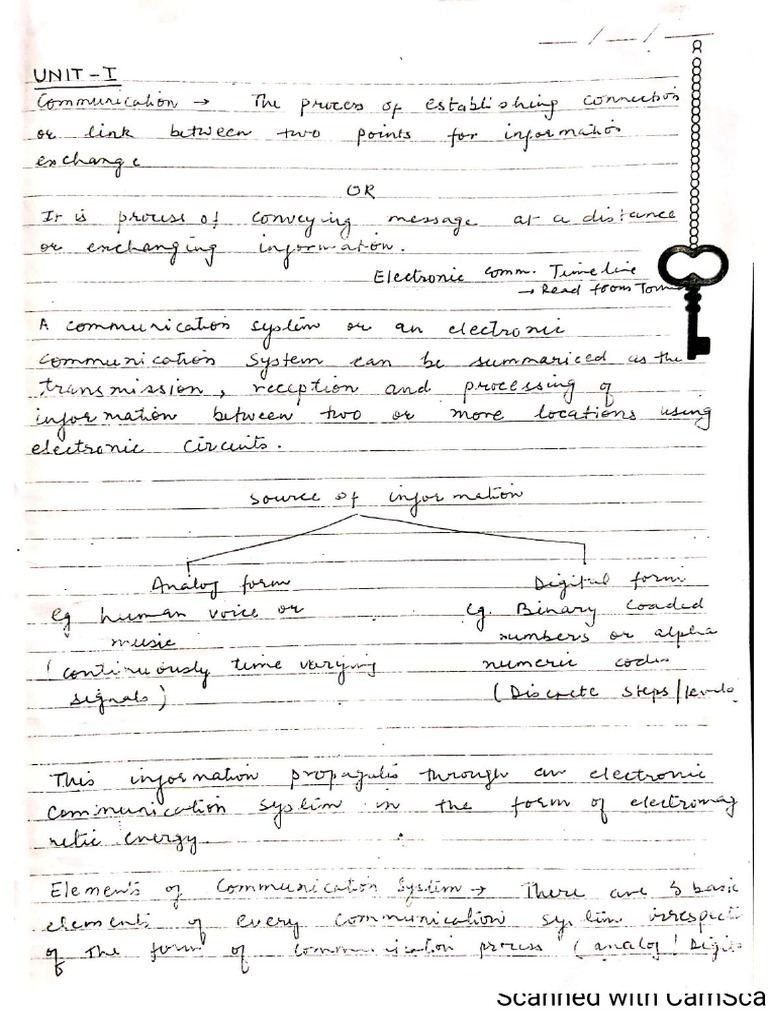 UNIT - I
Communication → The process of establishing connection
or link between two points for information
exchange
OR
It is process of conveying message at a distance
or exchanging information.
Electronic Comm. Timeline
→ Read from
A communication system or an electronic
communication System can be summariced as the
transmission, reception and processing of
information between two or more locations using
electronic Circuits.
Source of information
Analog form
Digital form
Eg human voice or
music
(continuously time varying
signals)
Eg. Binary Coaded
numbers or alpha
numeric codes
(Discrete Steps/levels
This information propagates through an electronic
communication system in the form of electromag
netic energy.
Elements of Communication System → There are 3 basic
elements of every communication system irrespecti
of the form of communication process (analog / Digit
Scanned with CamSca